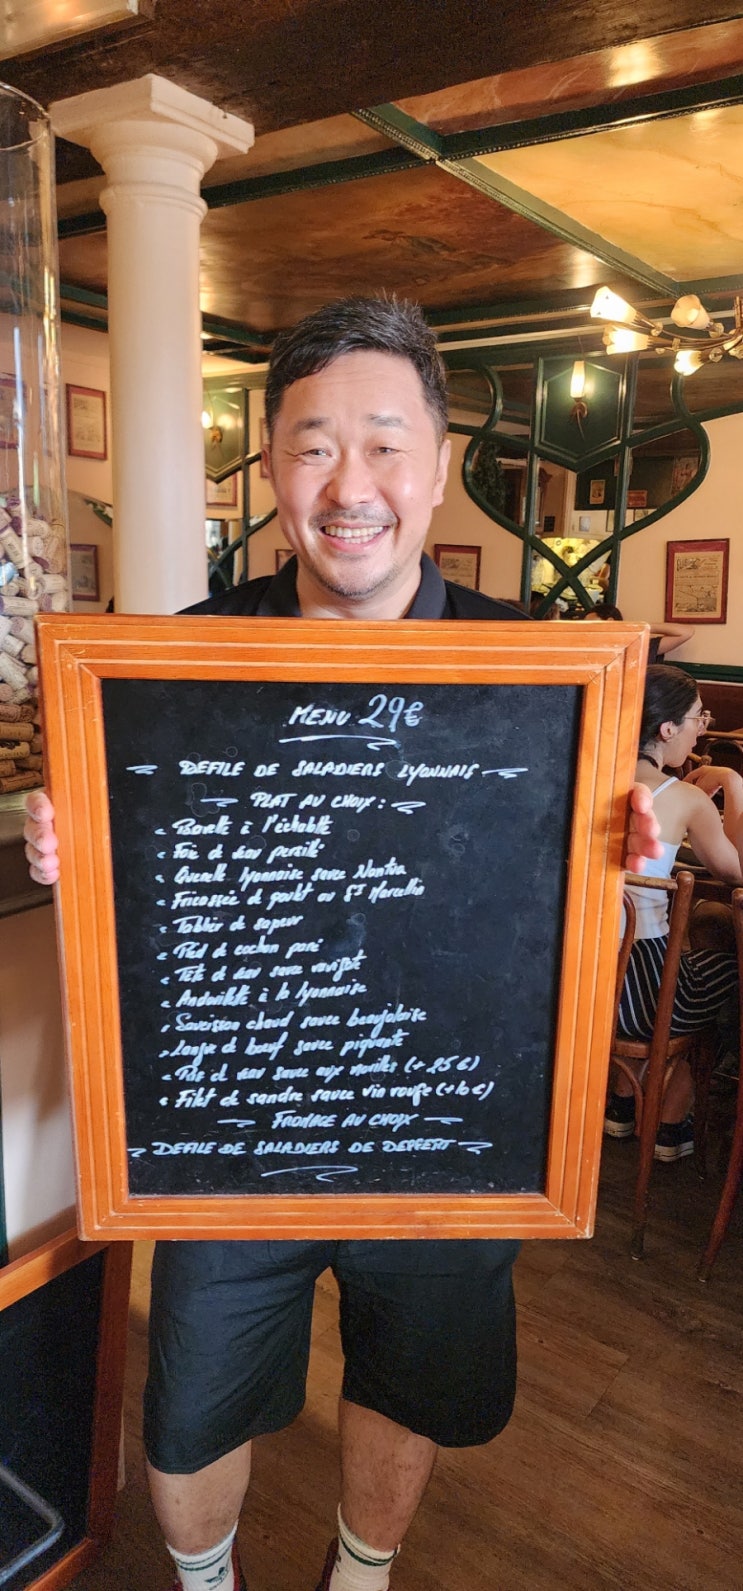 MENU 29€
DEFILE DE SALADIERS LYONNAIS
PLAT AU CHOIX :
Bavette à l'échalotte
Foie de veau persillé
Quenelle lyonnaise sauce Nantua
Fricassée de poulet au St Marcellin
Tablier de sapeur
Pied de cochon pané
Tête de veau sauce ravigote
Andouillette à la lyonnaise
Saucisson chaud sauce beaujolaise
Langue de boeuf sauce piquante
de veau sauce aux morilles
Filet de sandre sauce vin rouge (+10€)
FROMAGE AU CHOIX
DEFILE DE SALADIERS DE DESSERT